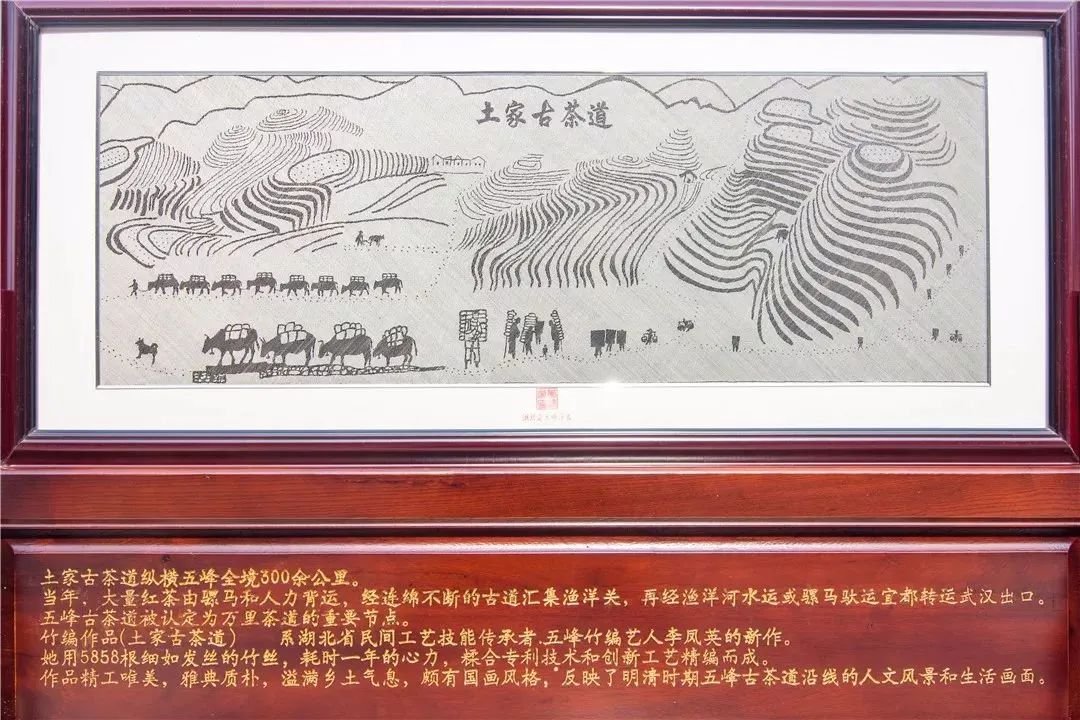 土家古茶道
土家古茶道纵横五峰全境300余公里。
当年，大量红茶由骡马和人力背运，经连绵不断的古道汇集渔洋关，再经渔洋河水运或骡马驮运宜都转运武汉出口。
五峰古茶道被认定为万里茶道的重要节点。
竹编作品(土家古茶道) 系湖北省民间工艺技能传承者.五峰竹编艺人李风英的新作。
她用5858根细如发丝的竹丝，耗时一年的心力，糅合专利技术和创新工艺精编而成。
作品精工唯美，雅典质朴，溢满乡土气息，颇有国画风格，反映了明清时期五峰古茶道沿线的人文风景和生活画面。